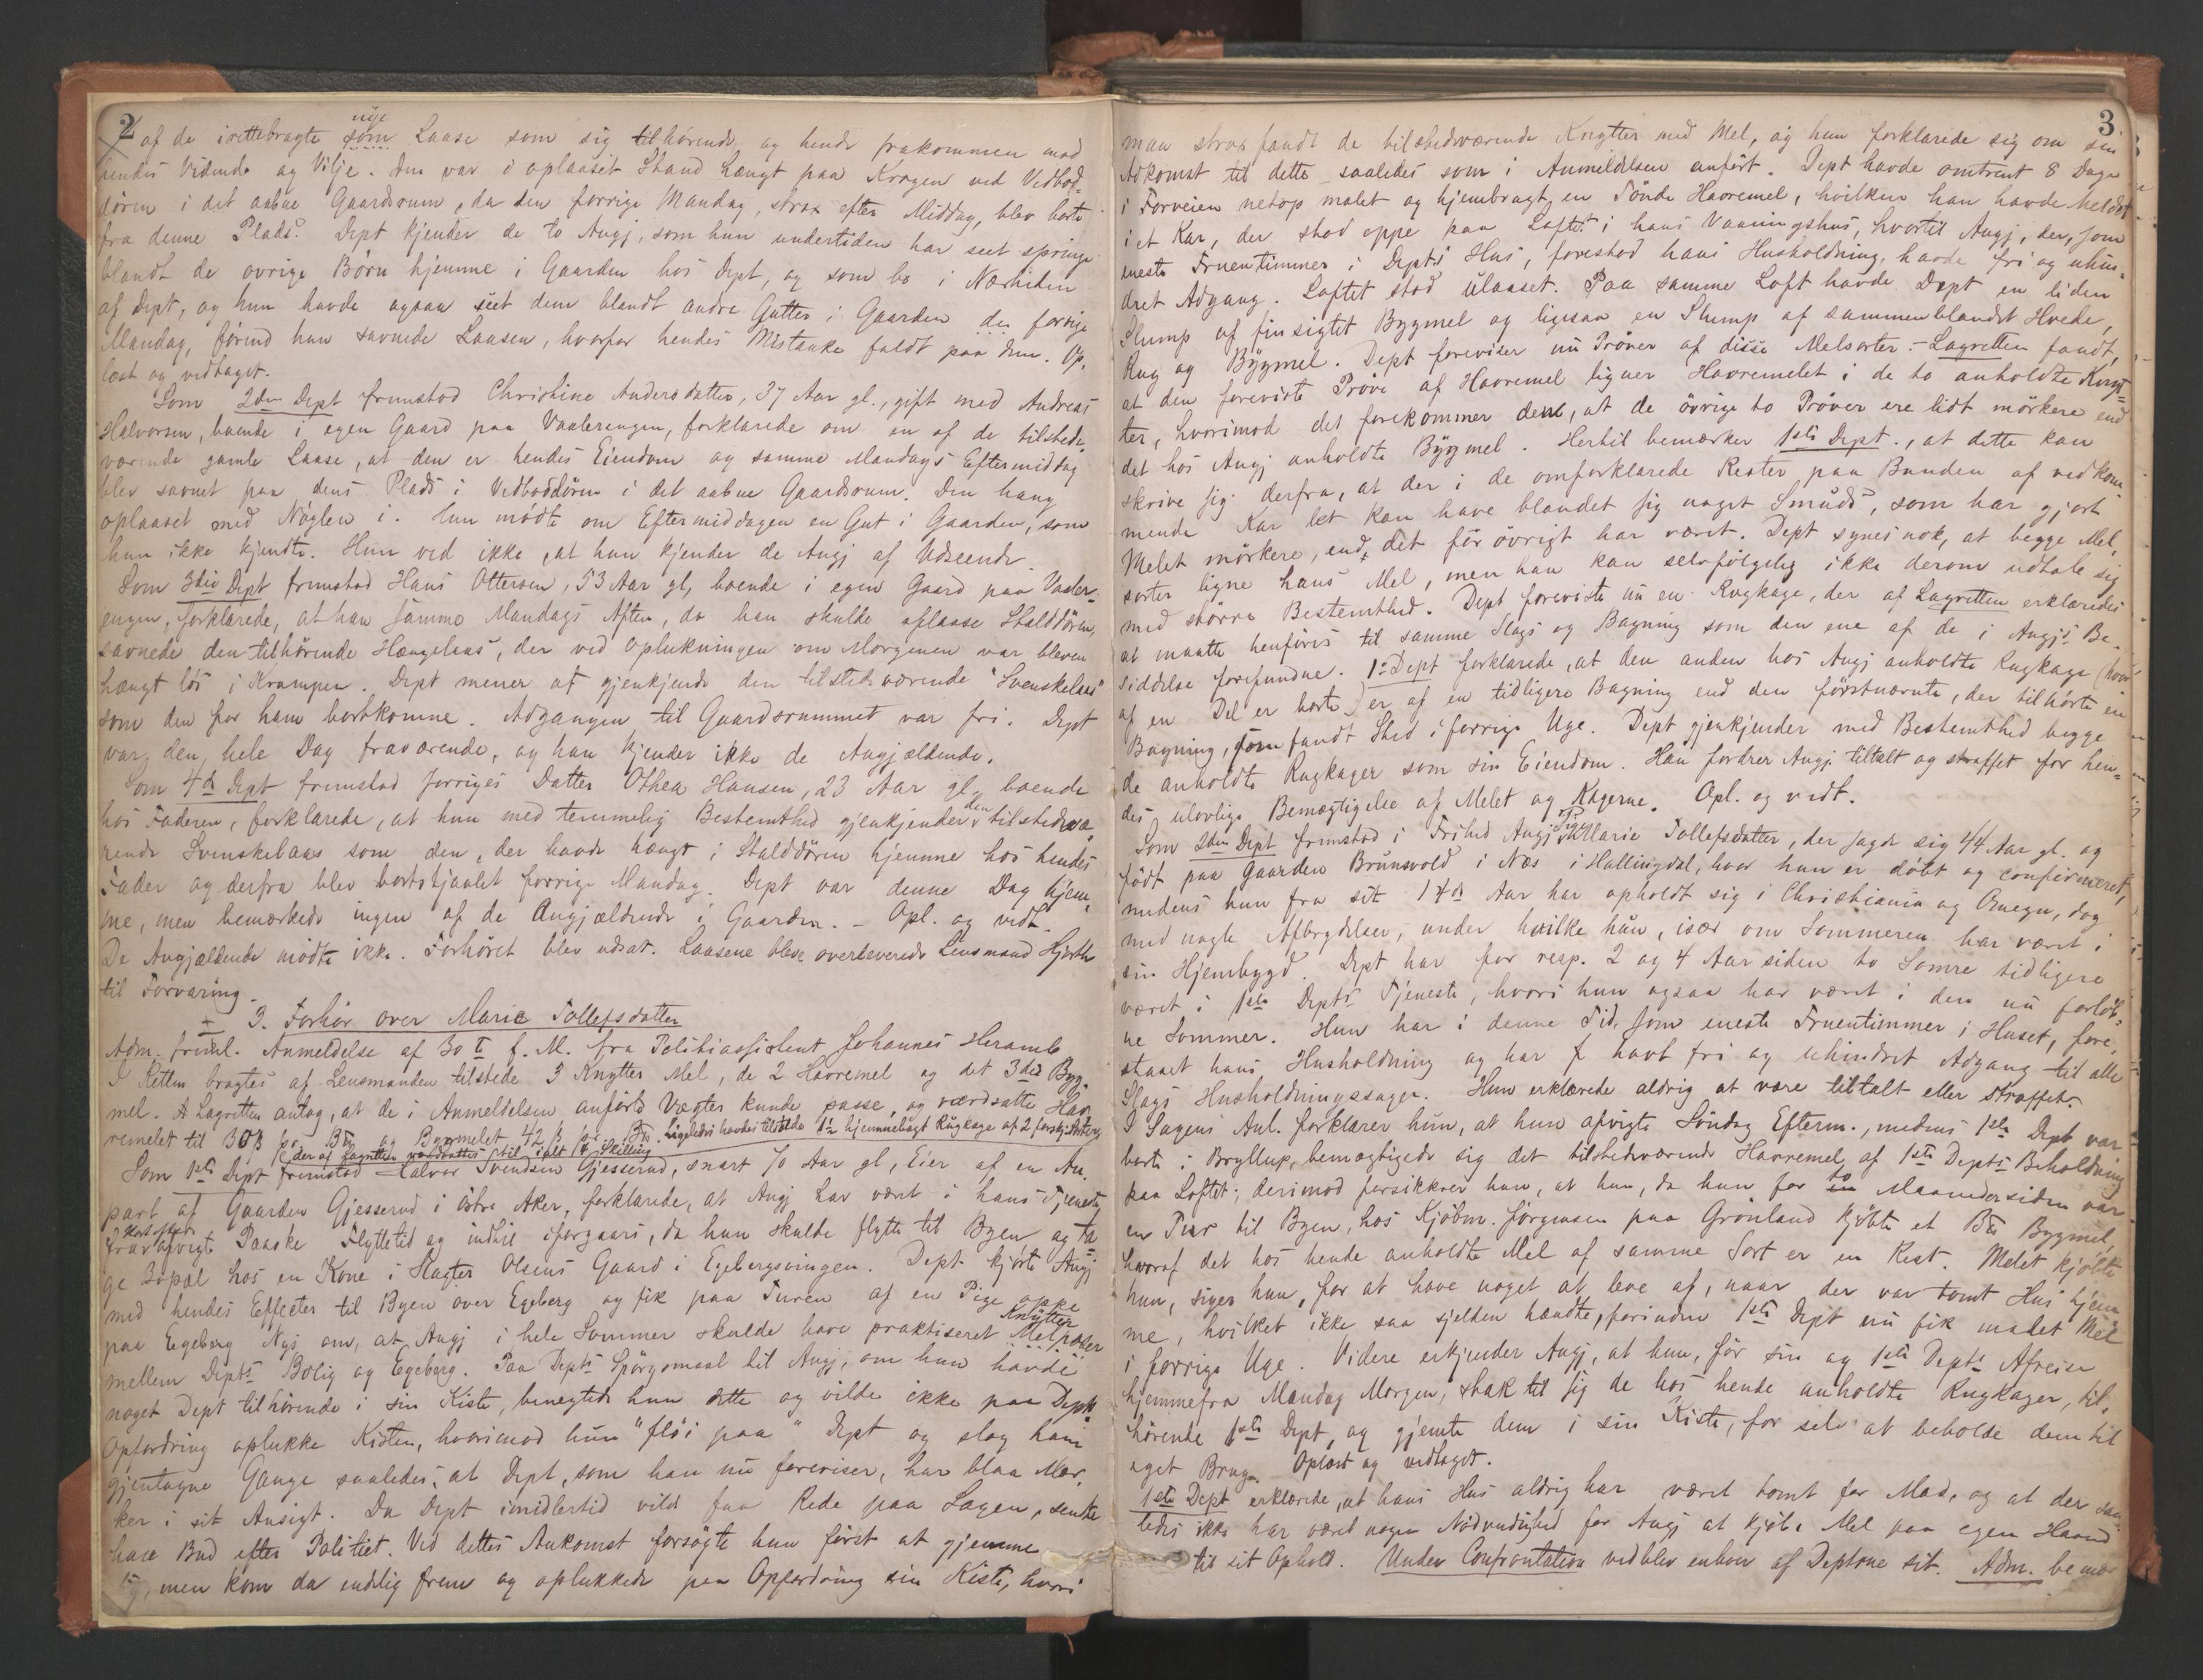 2
af de irettebragte nye som Laase som sig tilhørende og hende frakommen mod
hendes Vidende og Vilje. Den var i oplaaset Stand hængt paa Krogen ved Vedbod-
døren i det aabne Gaardsrum, da den forrige Mandag, strax efter Middag, blev borte
fra denne Plads. Dept kjender de to Angj, som hun undertiden har seet springe
blandt de øvrige Børn hjemme i Gaarden hos Dept, og som bo i Nærheden
af Dept, og hun havde ogsaa seet dem blandt andre Gutter i Gaarden den forrige
Mandag, førend hun savnede Laasen, hvorfor hendes Mistanke faldt paa dem. Op-
læst og vedtaget.
Som 2den Dept fremstod Christine Andersdatter, 37 Aar gl., gift med Andreas
Halvorsen, boende i egen Gaard paa Vaalerengen, forklarede om en af de tilstede
værende gamle Laase, at den er hendes Eiendom og samme Mandags Eftermiddag
blev savnet paa dens Plads i Vedboddøren i det aabne Gaardsrum. Den hang
oplaaset med Nøglen i. Hun mødte om Eftermiddagen en Gut i Gaarden, som
hun ikke kjendte. Hun ved ikke, at hun kjender de Angj af Udseende.
Som 3die Dept fremstod Hans Ottersen, 53 Aar gl, boende i egen Gaard paa Vaaler-
engen, forklarede, at han samme Mandags Aften, da han skulde aflaase Stalddøren,
savnede den tilhørende Hængelaas, der ved Oplukningen om Morgenen var bleven
hængt løs i Krampen. Dept mener at gjenkjende den tilstedeværende "Svenskelaas"
som den for ham bortkomne. Adgangen til Gaardsrummet var fri. Dept
var den hele Dag fraværende, og han kjender ikke de Angjældende.
Som 4de Dept fremstod forriges Datter Othea Hansen, 23 Aar gl, boende
hos Faderen, forklarede, at hun med temmelig Bestemthed gjenkjender den tilstedevæ-
rende Svenskelaas som den, der havde hængt i Stalddøren hjemme hos hendes
Fader og derfra blev bortstjaalet forrige Mandag. Dept var denne Dag hjem-
me, men bemærkede ingen af de Angjældende i Gaarden. - Opl. og vedt.
De Angjældende mødte ikke. Forhøret blev udsat. Laasene bleve overleverede Lensmand Hjorth
til Forvaring.
3. Forhør over Marie Tollefsdatter
Adm. freml. Anmeldelse af 30 f. M. fra Politiassistent Johannes Heramb
I Retten bragtes af Lensmanden tilstede 3 Knytter Mel, de 2 Havremel og det 3die Byg-
mel. Lagretten antog, at de i Anmeldelsen anførte Vægter kunde passe, og værdsatte Hav-
remelet til 30 ß pr. Bt og Bygmelet 42 ß pr Bt. Ligeledes havdes tilstede hjemmebagt Rugkage af 2 forskj. Sorter,
der af Lagretten værdsattes til ialt 12 Skilling
Som 1ste Dept fremstod Halvor Svendsen Gjesserud, snart 70 Aar gl, Eier af en An-
part af Gaarden Gjesserud i Østre Aker, forklarede, at Angj har været i hans Tjeneste
fra afvigte Paaske Flyttetid og indtil iforgaars, da hun skulde flytte til Byen og ta-
ge Bopæl hos en Kone i Slagter Olsens Gaard i Egebergsvingen. Dept kjørte Angj
med hendes Effecter til Byen over Egeberg og fik paa Turen af en Pige oppe
paa Egeberg Nys om, at Angj i hele Sommer skulde have praktiseret Knytter Melposer
mellem Depts Bolig og Egeberg. Paa Depts Spørgsmaal til Angj, om hun havde
noget Dept tilhørende i sin Kiste, benegtede hun dette og vilde ikke paa Depts
Opfordring oplukke Kisten, hvorimod hun "fløi paa" Dept og slog ham
gjentagne Gange saaledes, at Dept, som han nu foreviser, har blaa Mær-
ker i sit Ansigt. Da Dept imidlertid vilde faa Rede paa Sagen, sendte
han Bud efter Politiet. Ved dettes Ankomst forsøgte hun først at gjemme
sig, men kom da endelig frem og oplukkede paa Opfordring sin Kiste, hvori
3.
man strax fandt de tilstedeværende Knytter med Mel, og hun forklarede sig om sin
Adkomst til dette saaledes som i Anmeldelsen anført. Dept havde omtrent 8 Dage
i Forveien netop malet og hjembragt en Tønde Havremel, hvilken han havde heldet
i et Kar, der stod oppe paa Loftet i hans Vaaningshus, hvortil Angj, der, som
eneste Fruentimmer i Depts Hus, forestod hans Husholdning, havde fri og uhin-
dret Adgang. Loftet stod ulaaset. Paa samme Loft havde Dept en liden
Slump af finsigtet Bygmel og ligesaa en Slump af sammenblandet Hvede,
Rug og Bygmel. Dept foreviser nu Prøver af disse Melsorter. - Lagretten fandt,
at den foreviste Prøve af Havremel ligner Havremelet i de to anholdte Knyt-
ter, hvorimod det forekommer dem, at de øvrige to Prøver ere lidt mørkere end
det hos Angj anholdte Bygmel. Hertil bemærker 1ste Dept., at dette kan
skrive sig derfra, at der i de omforklarede Rester paa Bunden af vedkom-
mende Kar let kan have blandet sig noget Smuds, som har gjort
Melet mørkere, end det for øvrigt har været. Dept synes nok, at begge Mel-
sorter ligne hans Mel, men han kan selvfølgelig ikke derom udtale sig
med større Bestemthed. Dept foreviste nu en Rugkage, der af Lagretten erklæredes
at maatte henføres til samme Slags og Bagning som den ene af de i Angjs Be-
siddelse forefundne. 1ste Dept forklarede, at den anden hos Angj anholdte Rugkage (hvor-
af en Del er borte) er af en tidligere Bagning end den førstnævnte, der tilhørte en
Bagning, som fandt Sted i forrige Uge. Dept gjenkjender med Bestemthed begge
de anholdte Rugkager som sin Eiendom. Han fordrer Angj tiltalt og straffet for hen-
des ulovlige Bemægtigelse af Melet og Kagerne. Opl. og vedt.
Som 2den Dept fremstod i Frihed Angj Pige Marie Tollefsdatter, der sagde sig 44 Aar gl. og
født paa Gaarden Brunsvold i Næs i Hallingdal, hvor hun er døbt og confirmeret,
medens hun fra sit 14de Aar har opholdt sig i Christiania og Omegn, dog
med nogle Afbrydelser, under hvilke hun, især om Sommeren har været i
sin Hjembygd. Dept har for resp. 2 og 4 Aar siden to Somre tidligere
været i 1ste Depts Tjeneste, hvori hun ogsaa har været i den nu forløb-
ne Sommer. Hun har i denne Tid, som eneste Fruentimmer i Huset, fore-
staaet hans Husholdning og har havt fri og uhindret Adgang til alle
Slags Husholdningssager. Hun erklærede aldrig at være tiltalt eller straffet.
I Sagens Anl. forklarer hun, at hun afvigte Søndag Efterm., medens 1ste Dept var
borte i Bryllup, bemægtigede sig det tilstedeværende Havremel af 1ste Depts Beholdning
paa Loftet; derimod forsikkrer hun, at hun, da hun for to Maaneder siden var
en Tur til Byen, hos Kjøbm. Jørgensen paa Grønland kjøbte et Bt Bygmel,
hvoraf det hos hende anholdte Mel af samme Sort er en Rest. Melet kjøbte
hun, siger hun, for at have noget at leve af, naar der var tomt Hus hjem-
me, hvilket ikke saa sjelden hændte, forinden 1ste Dept nu fik malet Mel
i forrige Uge. Videre erkjender Angj, at hun, før sin og 1ste Depts Afreise
hjemmefra Mandag Morgen, stak til sig de hos hende anholdte Rugkager, til-
hørende 1ste Dept, og gjemte dem i sin Kiste, for selv at beholde dem til
eget Brug. Oplæst og vedtaget.
1ste Dept erklærede, at hans Hus aldrig har været tomt for Mad, og at der saa-
ledes ikke har været nogen Nødvendighed for Angj at kjøbe Mel paa egen Haand
til sit Ophold. Under Confrontation vedblev enhver af Deptne sit. Adm. bemær